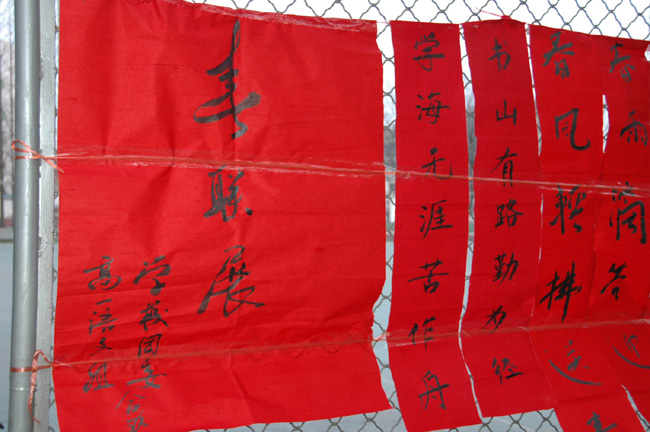 春雨滴答
春风轻拂
书山有路勤为径
学海无涯苦作舟
春联展
学校团委
高一语文组